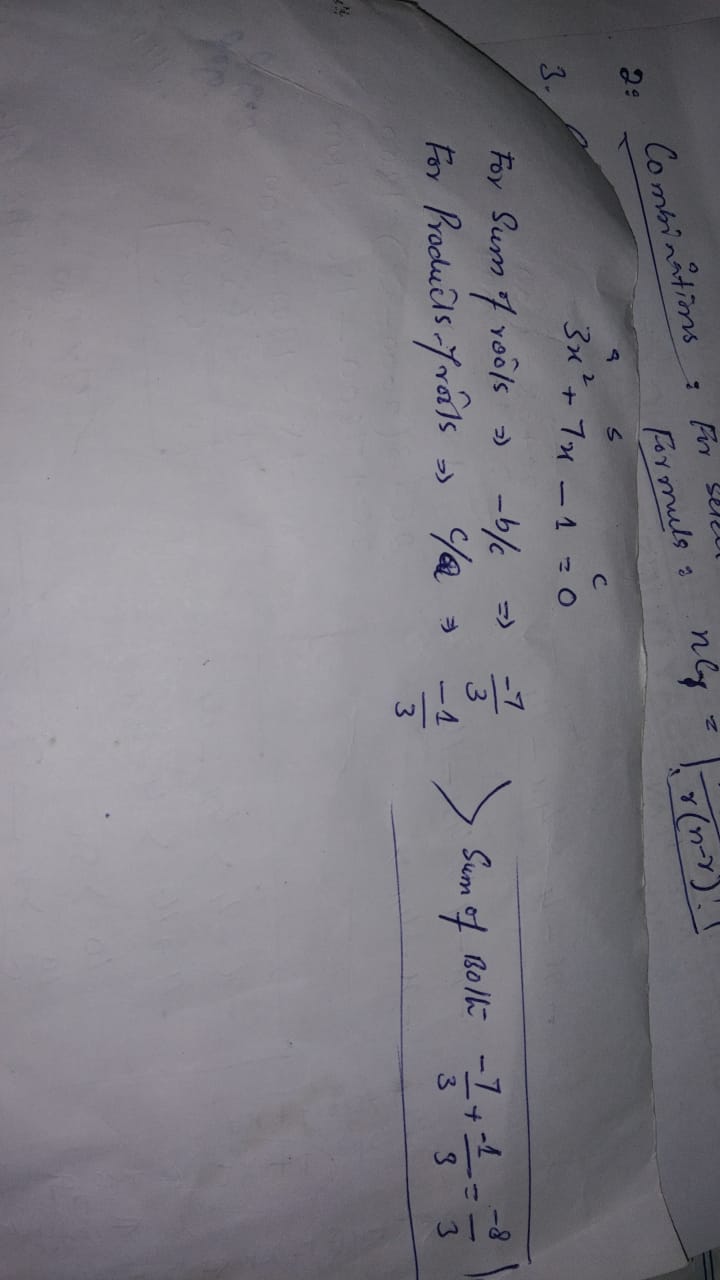 2: Combinations : For
Formula : nCr =
r(n-r)!
3.
a b c
3x² + 7x - 1 = 0
For Sum of roots => -b/c => -7/3
For Products of roots => c/a => -1/3
Sum of Both -7/3 + -1/3 = -8/3